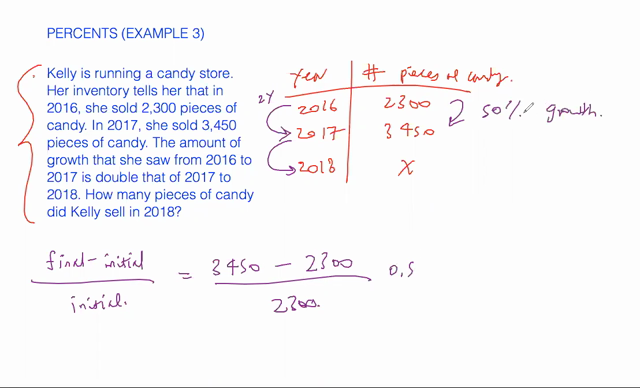 PERCENTS (EXAMPLE 3)
Kelly is running a candy store.
Her inventory tells her that in
2016, she sold 2,300 pieces of
candy. In 2017, she sold 3,450
pieces of candy. The amount of
growth that she saw from 2016 to
2017 is double that of 2017 to
2018. How many pieces of candy
did Kelly sell in 2018?
Year # pieces of candy.
2Y 2016 2300
2017 3450
2018 X
50% growth.
final-initial = 3450 - 2300 0.5
initial. 2300.